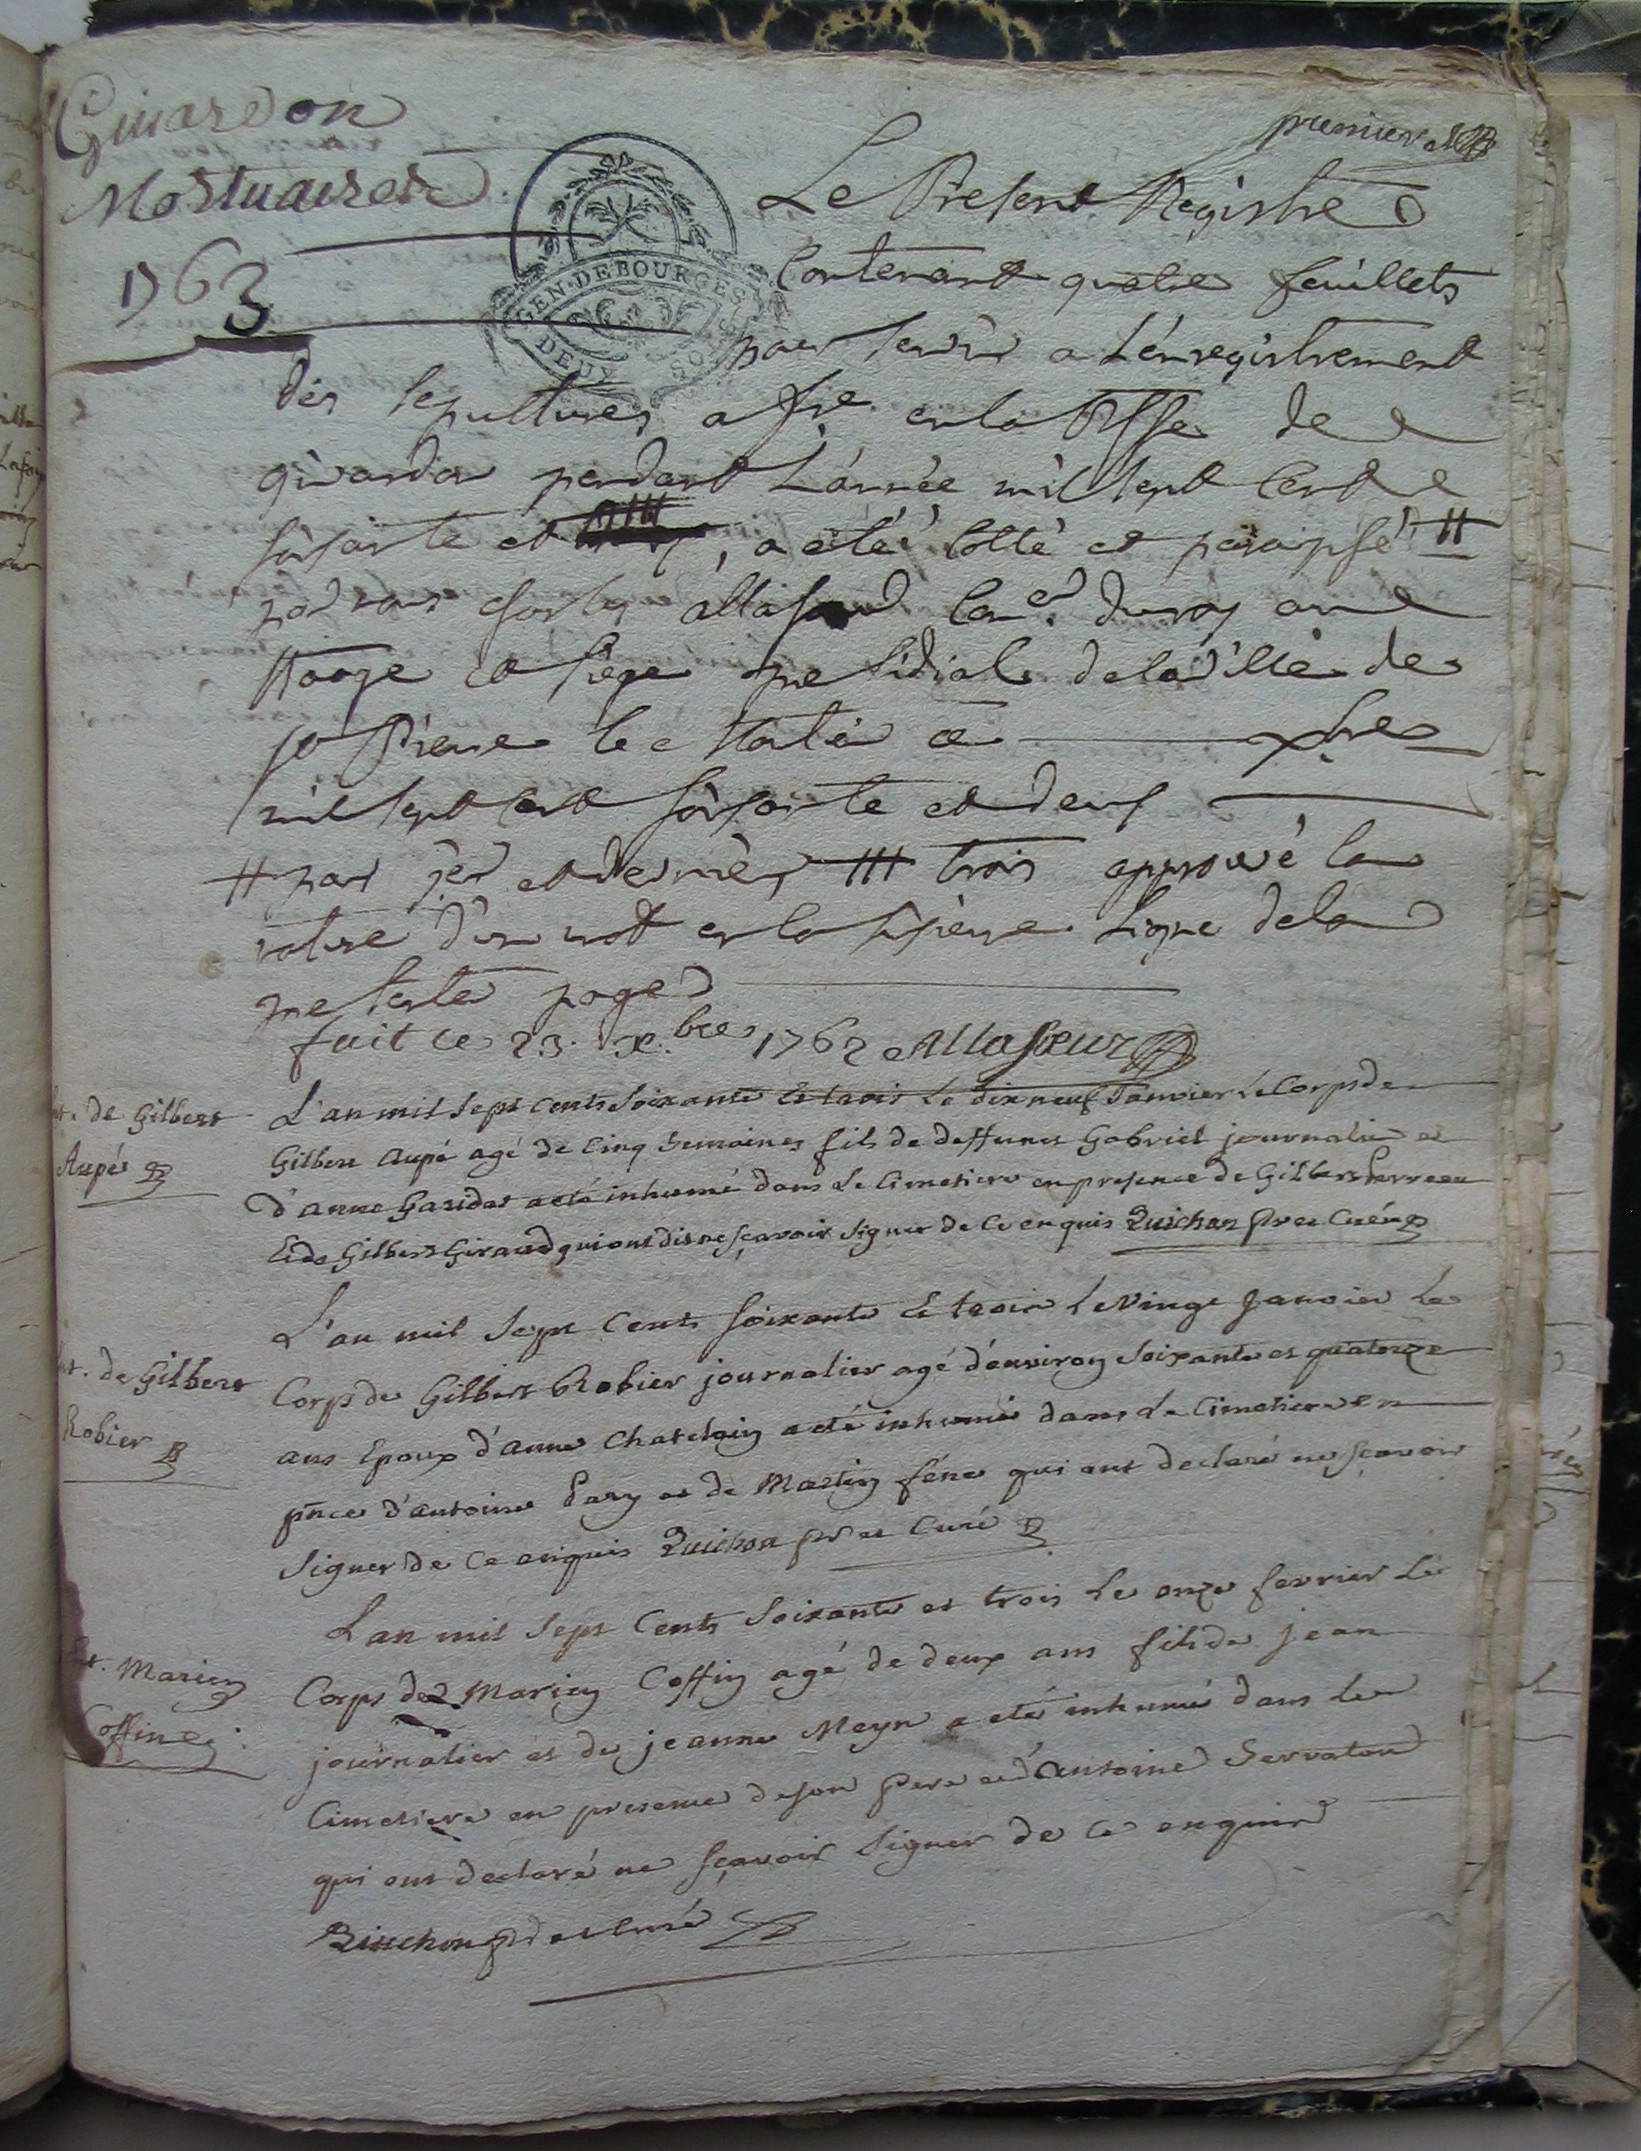 premier
Givardon
Mortuaires
1763
GEN. DE BOURGES
DEUX SOLS
Le Present Registre
Contenant quatre feuillets
pour servir a L'énregistrement
des sepultures a fre en la Psse de
givardon pendant L'année mil sept Cent
soixante et , a eté cotté et paraphé #
par nous allasoeur Coner du roy au
siege presidial de la ville de
st Pierre le ce xbre
mil sept cent soixante et deux
# par per et dernier, ### trois approuvé la
rature d'un mot en la sixieme Ligne de la
presente page
fait ce 23. xbre 1762 Allasoeur
de Gilbert
Aupé
L'an mil sept cents soixante et trois le dix neuf Janvier le Corps de
Gilbert Aupé agé de cinq semaines fils de deffunct Gabriel journalier et
d'anne a eté inhumé dans le cimetiere en presence de Gilbert Perreau
Et de Gilbert Giraud qui ont dit ne sçavoir signer de ce enquis Quichon Pr et Curé
de Gilbert
Robier
L'an mil sept Cents soixante et trois le vingt janvier le
Corps de Gilbert Robier journalier agé d'environ soixante et quatorze
ans Epoux d'anne Chatelain a eté inhumé dans le Cimetiere en
pnce d'antoine Pary et de Martin féné qui ont declaré ne sçavoir
signer de ce enquis Quichon pr et Curé
Marien
Coffin
L'an mil sept Cents soixante et trois le onze fevrier le
Corps de Marien Coffin agé de deux ans fils de jean
journalier et de jeanne Meyn a eté inhumé dans le
Cimetiere en presence de son Pere et d'Antoine Servaton
qui ont declaré ne sçavoir signer de ce enquis
Quichon Pr et Curé